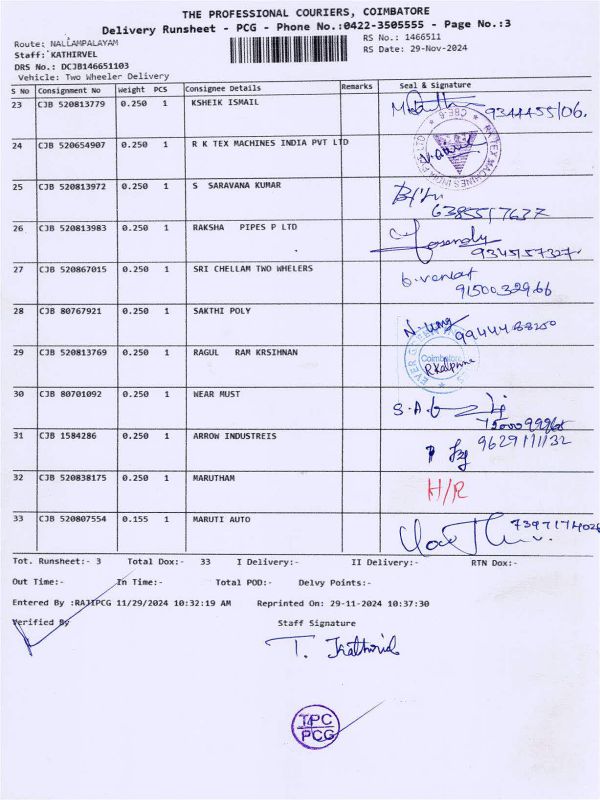 THE PROFESSIONAL COURIERS, COIMBATORE
Delivery Runsheet - PCG - Phone No.:0422-3505555 - Page No.:3
Route: NALLAMPALAYAM
RS No.: 1466511
Staff: KATHIRVEL
RS Date: 29-Nov-2024
DRS No.: DCJB146651103
Vehicle: Two Wheeler Delivery
S No Consignment No Weight PCS Consignee Details Remarks Seal & Signature
23 CJB 520813779 0.250 1 KSHEIK ISMAIL
24 CJB 520654907 0.250 1 R K TEX MACHINES INDIA PVT LTD
25 CJB 520813972 0.250 1 S SARAVANA KUMAR
26 CJB 520813983 0.250 1 RAKSHA PIPES P LTD 9345157327
27 CJB 520867015 0.250 1 SRI CHELLAM TWO WHELERS b.venkat
9150032966
28 CJB 80767921 0.250 1 SAKTHI POLY
29 CJB 520813769 0.250 1 RAGUL RAM KRSIHNAN Coimbatore
30 CJB 80701092 0.250 1 WEAR MUST
31 CJB 1584286 0.250 1 ARROW INDUSTREIS 9629111132
32 CJB 520838175 0.250 1 MARUTHAM H/R
33 CJB 520807554 0.155 1 MARUTI AUTO
Tot. Runsheet:- 3 Total Dox:- 33 I Delivery:- II Delivery:- RTN Dox:-
Out Time:- In Time:- Total POD:- Delvy Points:-
Entered By :RAJIPCG 11/29/2024 10:32:19 AM Reprinted On: 29-11-2024 10:37:30
Verified By Staff Signature
TPC
PCG